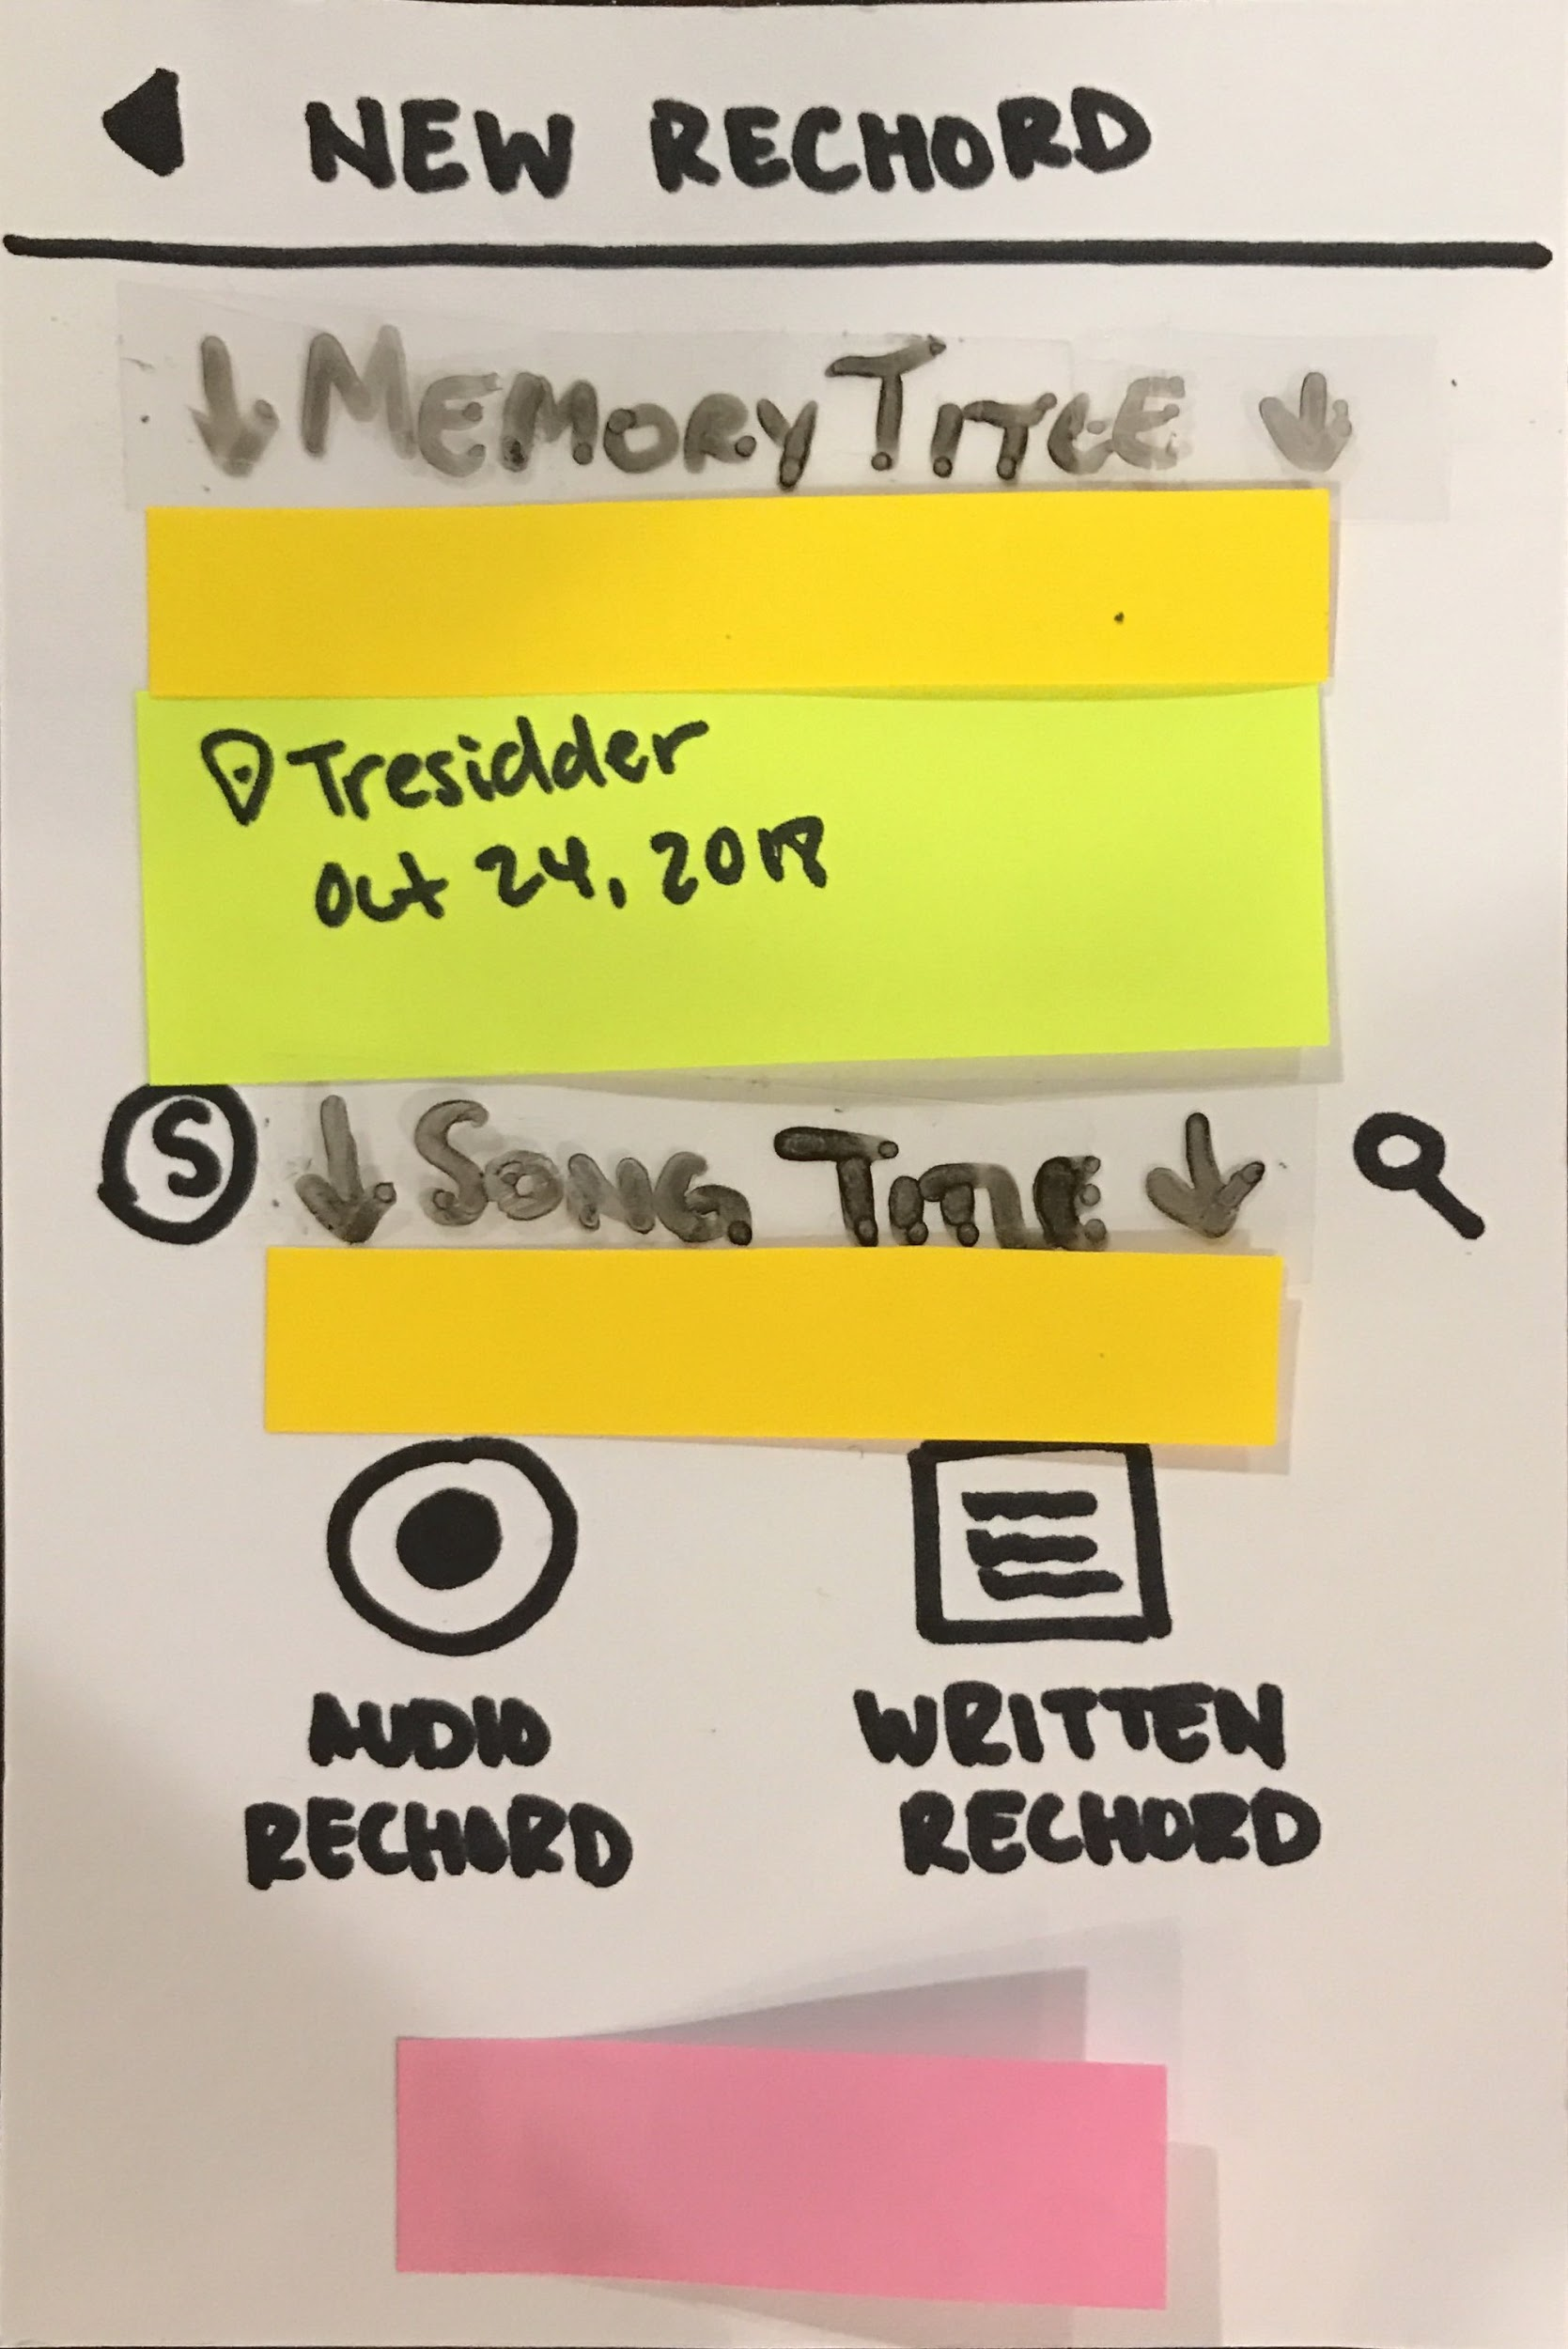 NEW RECHORD
↓ MEMORY TITLE ↓
Tresidder
Oct 24, 2018
S ↓ SONG TITLE ↓
AUDIO
RECHORD
WRITTEN
RECHORD